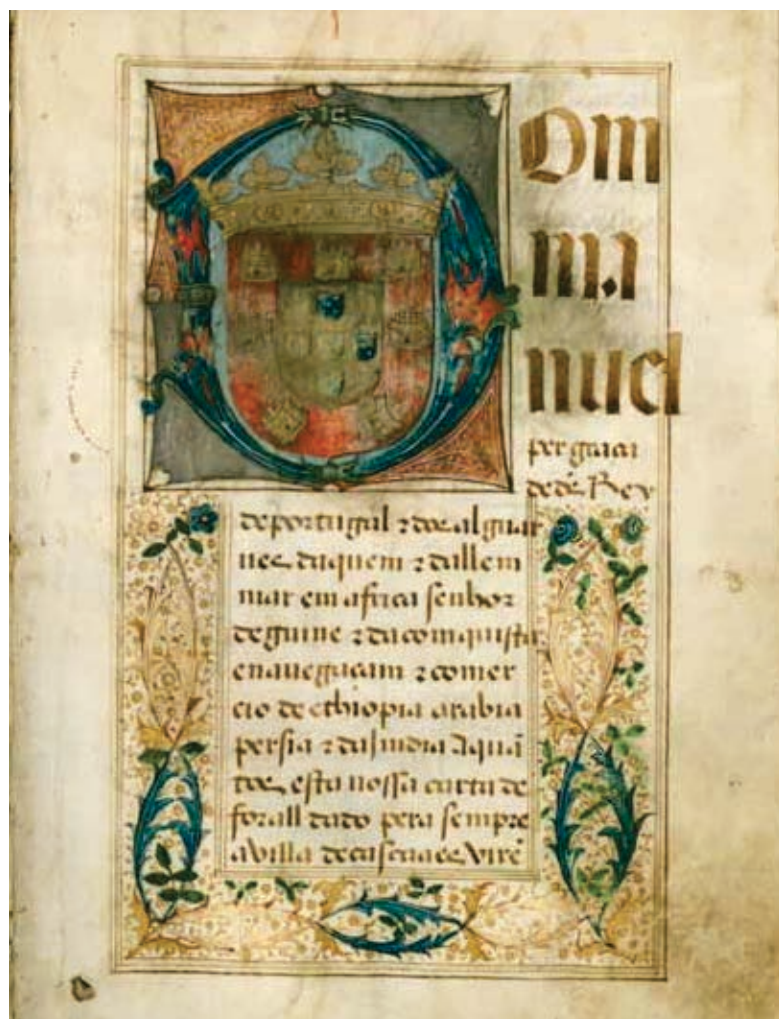 Dom
ma
nuel
per graça
de d̃s Rey
de portugal ⁊ dos algar
ues daquem ⁊ dallem
mar em africa senhor
de guine ⁊ da comquista
e nauegaçam ⁊ comer
cio de ethiopia arabia
persia ⁊ da India A quã
tos esta nossa carta de
forall dado pera sempre
a villa de cascaaes virẽ